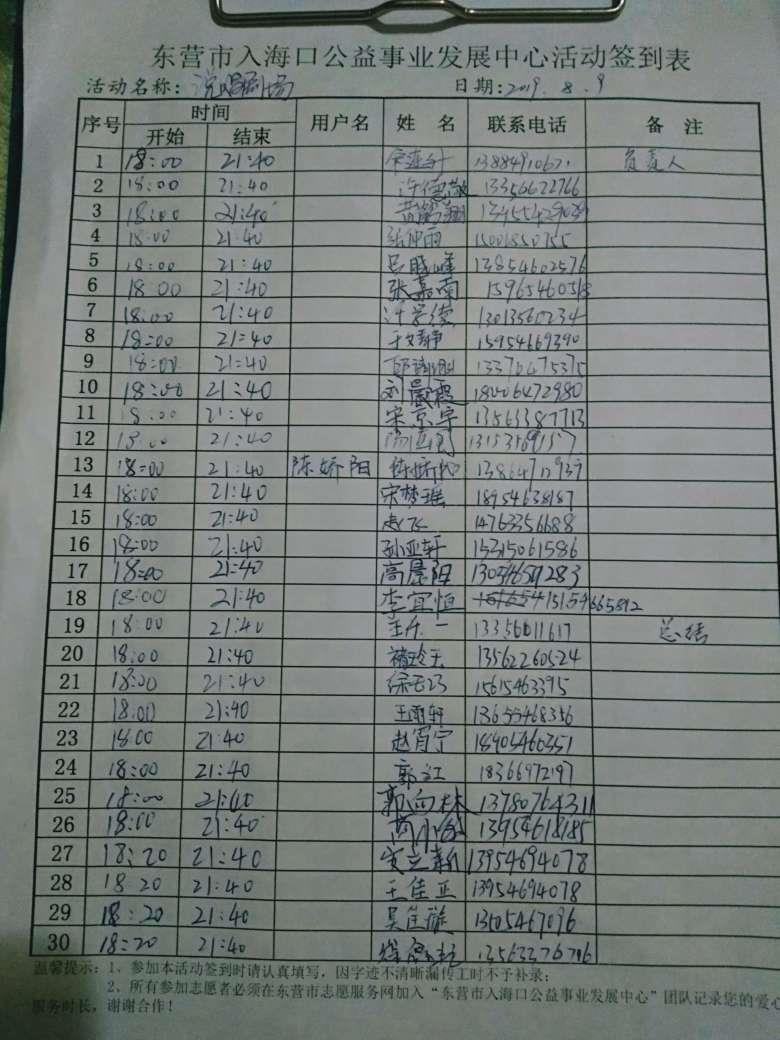 东营市入海口公益事业发展中心活动签到表
活动名称: 说唱剧场 日期: 2019.8.9
序号 时间 用户名 姓名 联系电话 备注
开始 结束
1 18:00 21:40 13884910671 负责人
2 18:00 21:40 13356622766
3 18:00 21:40
4 18:00 21:40 张仲雨 15001850755
5 18:00 21:40 吕晓峰 13854602576
6 18:00 21:40 张嘉南
7 18:00 21:40 许学德 13013560234
8 18:00 21:40 于文静 15954669390
9 18:00 21:40 13370475375
10 18:00 21:40 刘晨霞 18006472980
11 18:00 21:40 宋京宇 13563387713
12 18:00 21:40
13 18:00 21:40 陈娇阳 陈娇阳
14 18:00 21:40 宋梦瑶 18954638187
15 18:00 21:40 赵飞 14763356688
16 18:00 21:40 孙亚轩 15315061586
17 18:00 21:40 高晨阳 13054659283
18 18:00 21:40 李宜恒 15154665892
19 18:00 21:40 13356011617 总结
20 18:00 21:40 褚玲玉 13562260524
21 18:00 21:40 15615463395
22 18:00 21:40 王雨轩 13655468356
23 18:00 21:40 赵宵宁
24 18:00 21:40 郭江 18366972197
25 18:00 21:40 郭向林 13780764311
26 18:00 21:40 13954618185
27 18:20 21:40 13954694078
28 18:20 21:40 王佳亚 13954694078
29 18:20 21:40 吴佳璇 13105467096
30 18:20 21:40
温馨提示: 1、参加本活动签到时请认真填写, 因字迹不清晰漏传工时不予补录;
2、所有参加志愿者必须在东营市志愿服务网加入“东营市入海口公益事业发展中心”团队记录您的爱心
服务时长, 谢谢合作!